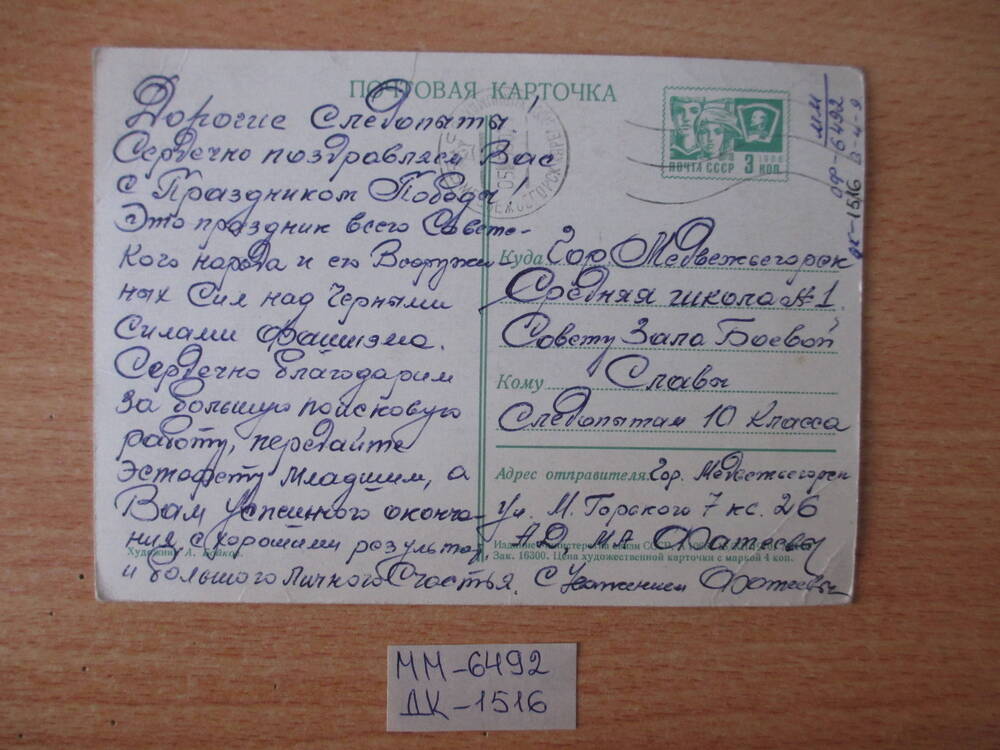 ПОЧТОВАЯ КАРТОЧКА
Дорогие Следопыты
Сердечно поздравляем Вас
с Праздником Победы.
Это праздник всего Советс-
кого народа и его Вооружен-
ных Сил над Черными
Силами фашизма.
Сердечно благодарим
за большую поисковую
работу, передайте
Эстафету младшим, а
Вам успешного оконча-
ния с хорошими результа,
и большого Личного Счастья. С Уважением Фатеевы
Художник А. Бойков.
ПОЧТА СССР 3 КОП.
1966
Куда Гор. Медвежьегорск
Средняя школа №1.
Совету Зала Боевой
Кому Славы
Следопытам 10 класса
Адрес отправителя: Гор. Медвежьегорск
ул. М. Горского 7 кс. 26
АД МА Фатеевы
Издание Министерства связи СССР.
Зак. 16300. Цена художественной карточки с маркой 4 коп.
ММ
ОФ-6492
ДК-1516 В-4-9
ММ-6492
ДК-1516